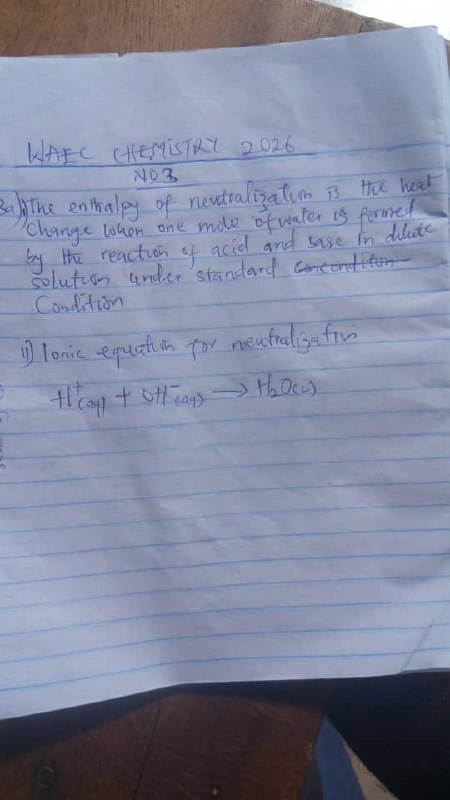 WAEC CHEMISTRY 2026
NO3
3a)i) The enthalpy of neutralization is the heat
change when one mole of water is formed
by the reaction of acid and base in dilute
solution under standard
Condition
ii) Ionic equation for neutralization
H⁺(aq) + OH⁻(aq) → H₂O(l)